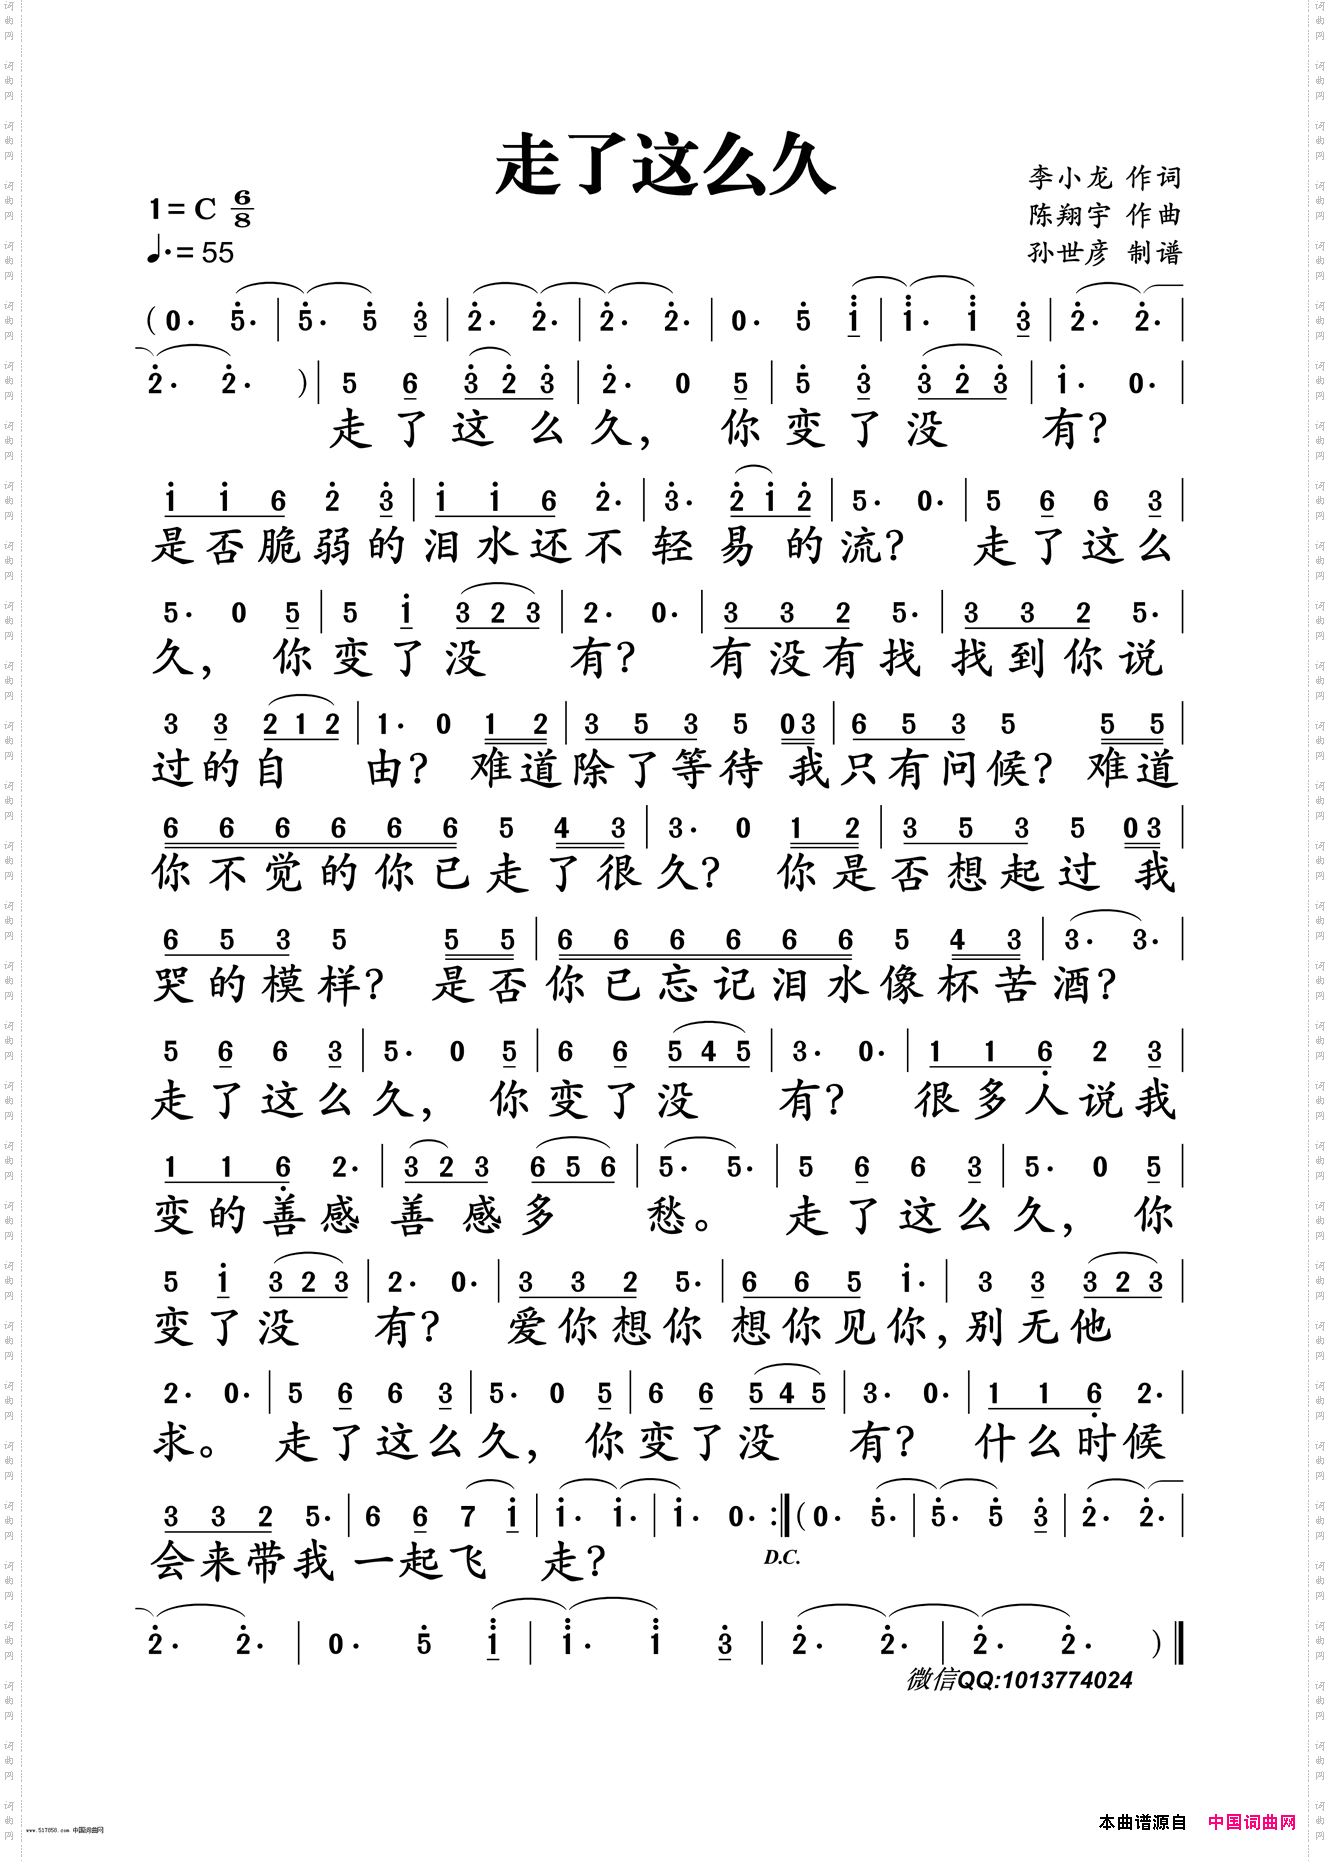 走了这么久
1=C 6/8
♩.=55
李小龙 作词
陈翔宇 作曲
孙世彦 制谱
(0· 5̇· | 5̇· 5̇ 3̇ | 2̇· 2̇· | 2̇· 2̇· | 0· 5̇ 1̇ | 1̇· 1̇ 3̇ | 2̇· 2̇· |
2̇· 2̇· ) | 5 6 3̇ 2̇ 3̇ | 2̇· 0 5 | 5̇ 3̇ 3̇ 2̇ 3̇ | 1̇· 0· |
走了这么久， 你变了没 有？
1̇ 1̇ 6 2̇ 3̇ | 1̇ 1̇ 6 2̇· | 3̇· 2̇ 1̇ 2̇ | 5· 0· | 5 6 6 3 |
是否脆弱的泪水还不轻易的流？ 走了这么
5· 0 5 | 5 1̇ 3 2 3 | 2· 0· | 3 3 2 5· | 3 3 2 5· |
久， 你变了没 有？ 有没有找找到你说
3 3 2 1 2 | 1· 0 1 2 | 3 5 3 5 0 3 | 6 5 3 5 5 5 |
过的自 由？ 难道除了等待我只有问候？难道
6 6 6 6 6 6 5 4 3 | 3· 0 1 2 | 3 5 3 5 0 3 |
你不觉的你已走了很久？ 你是否想起过 我
6 5 3 5 5 5 | 6 6 6 6 6 6 5 4 3 | 3· 3· |
哭的模样？ 是否你已忘记泪水像杯苦酒？
5 6 6 3 | 5· 0 5 | 6 6 5 4 5 | 3· 0· | 1 1 6̣ 2 3 |
走了这么久， 你变了没 有？ 很多人说我
1 1 6̣ 2· | 3 2 3 6 5 6 | 5· 5· | 5 6 6 3 | 5· 0 5 |
变的善感善感多 愁。 走了这么久， 你
5 1̇ 3 2 3 | 2· 0· | 3 3 2 5· | 6 6 5 1̇· | 3 3 3 2 3 |
变了没 有？ 爱你想你想你见你，别无他
2· 0· | 5 6 6 3 | 5· 0 5 | 6 6 5 4 5 | 3· 0· | 1 1 6̣ 2· |
求。 走了这么久， 你变了没 有？ 什么时候
3 3 2 5· | 6 6 7 1̇ | 1̇· 1̇· | 1̇· 0· :‖ (0· 5̇· | 5̇· 5̇ 3̇ | 2̇· 2̇· |
会来带我一起飞 走？
D.C.
2̇· 2̇· | 0· 5̇ 1̇ | 1̇· 1̇ 3̇ | 2̇· 2̇· | 2̇· 2̇· ) ‖
微信QQ:1013774024
本曲谱源自 中国词曲网
www.517050.com 中国词曲网